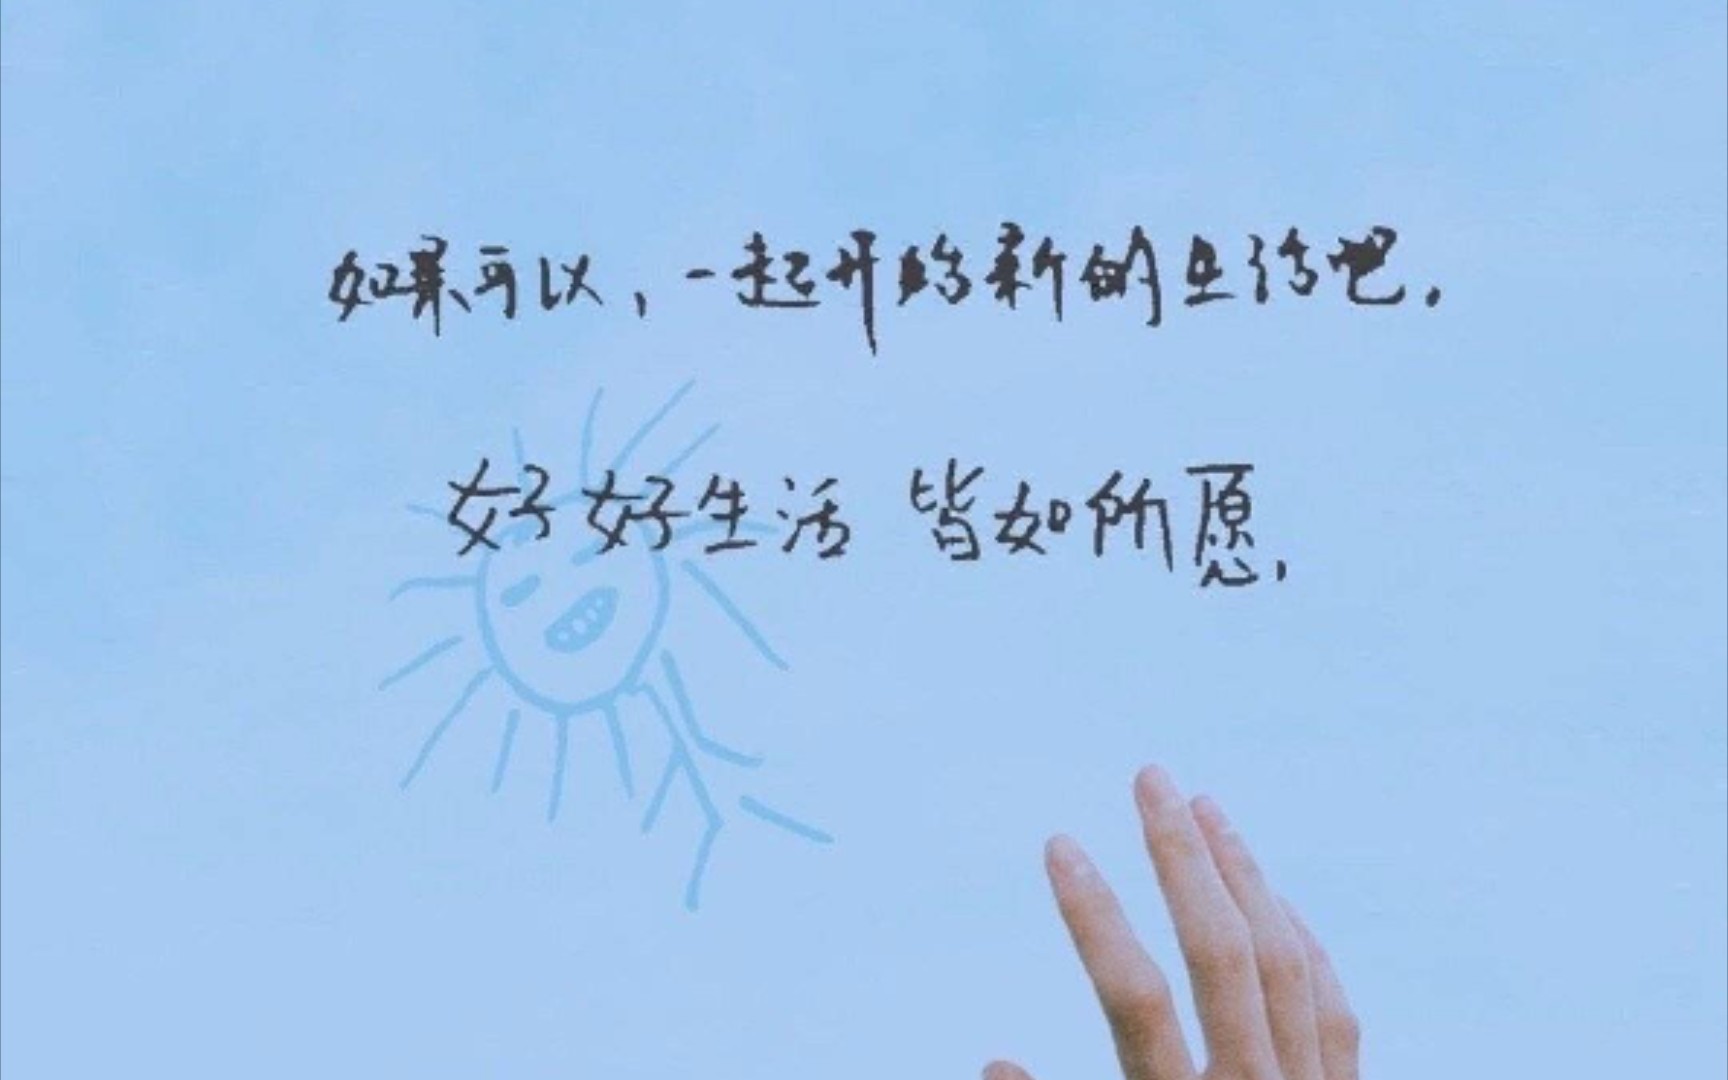 如果可以，一起开始新的生活吧.
好好生活 皆如所愿,